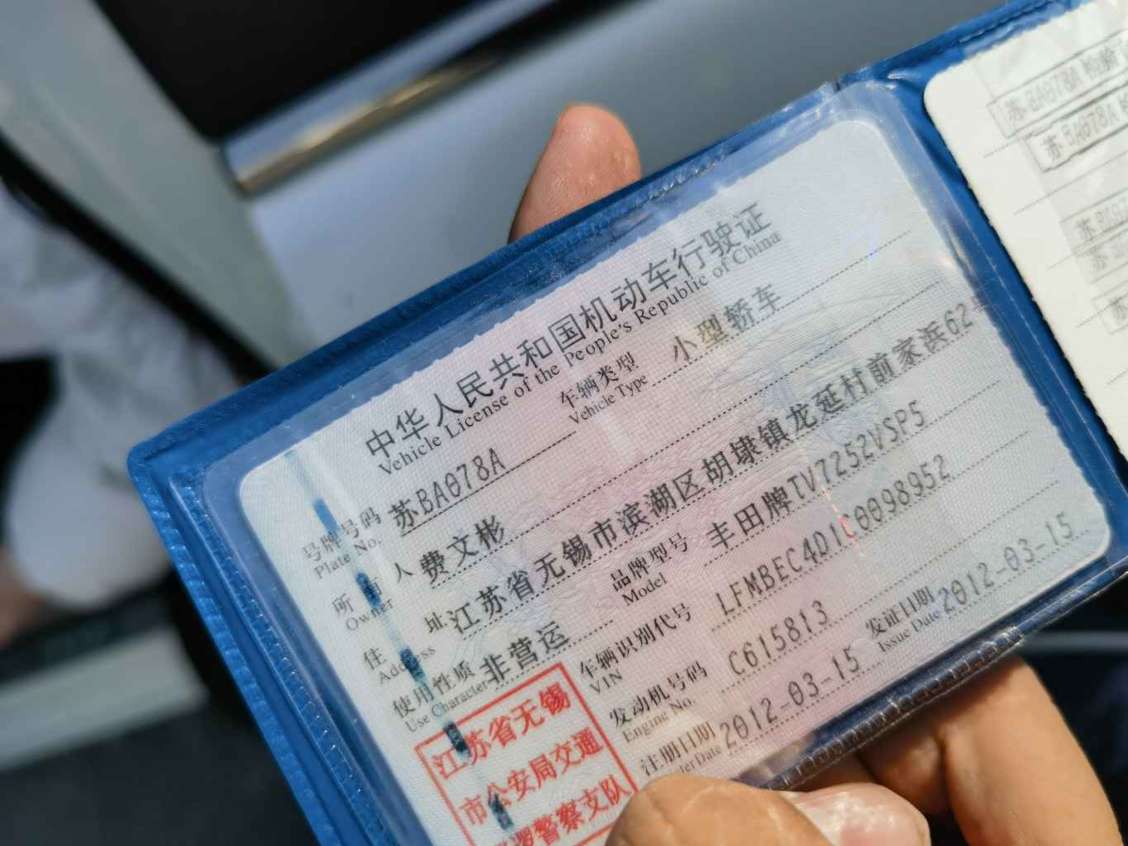 中华人民共和国机动车行驶证
Vehicle License of the People's Republic of China
号牌号码 苏BA078A 车辆类型 小型轿车
Plate No. Vehicle Type
所 人 费文彬
Owner
住 址 江苏省无锡市滨湖区胡埭镇龙延村前家浜62
Address
使用性质 非营运 品牌型号 丰田牌TV7252VSP5
Use Character Model
车辆识别代号 LFMBEC4D1C0098952
VIN
发动机号码 C615813
Engine No.
注册日期 2012-03-15 发证日期 2012-03-15
Date Issue Date
江苏省无锡
市公安局交通
警察支队
苏BA078A
苏BA078A